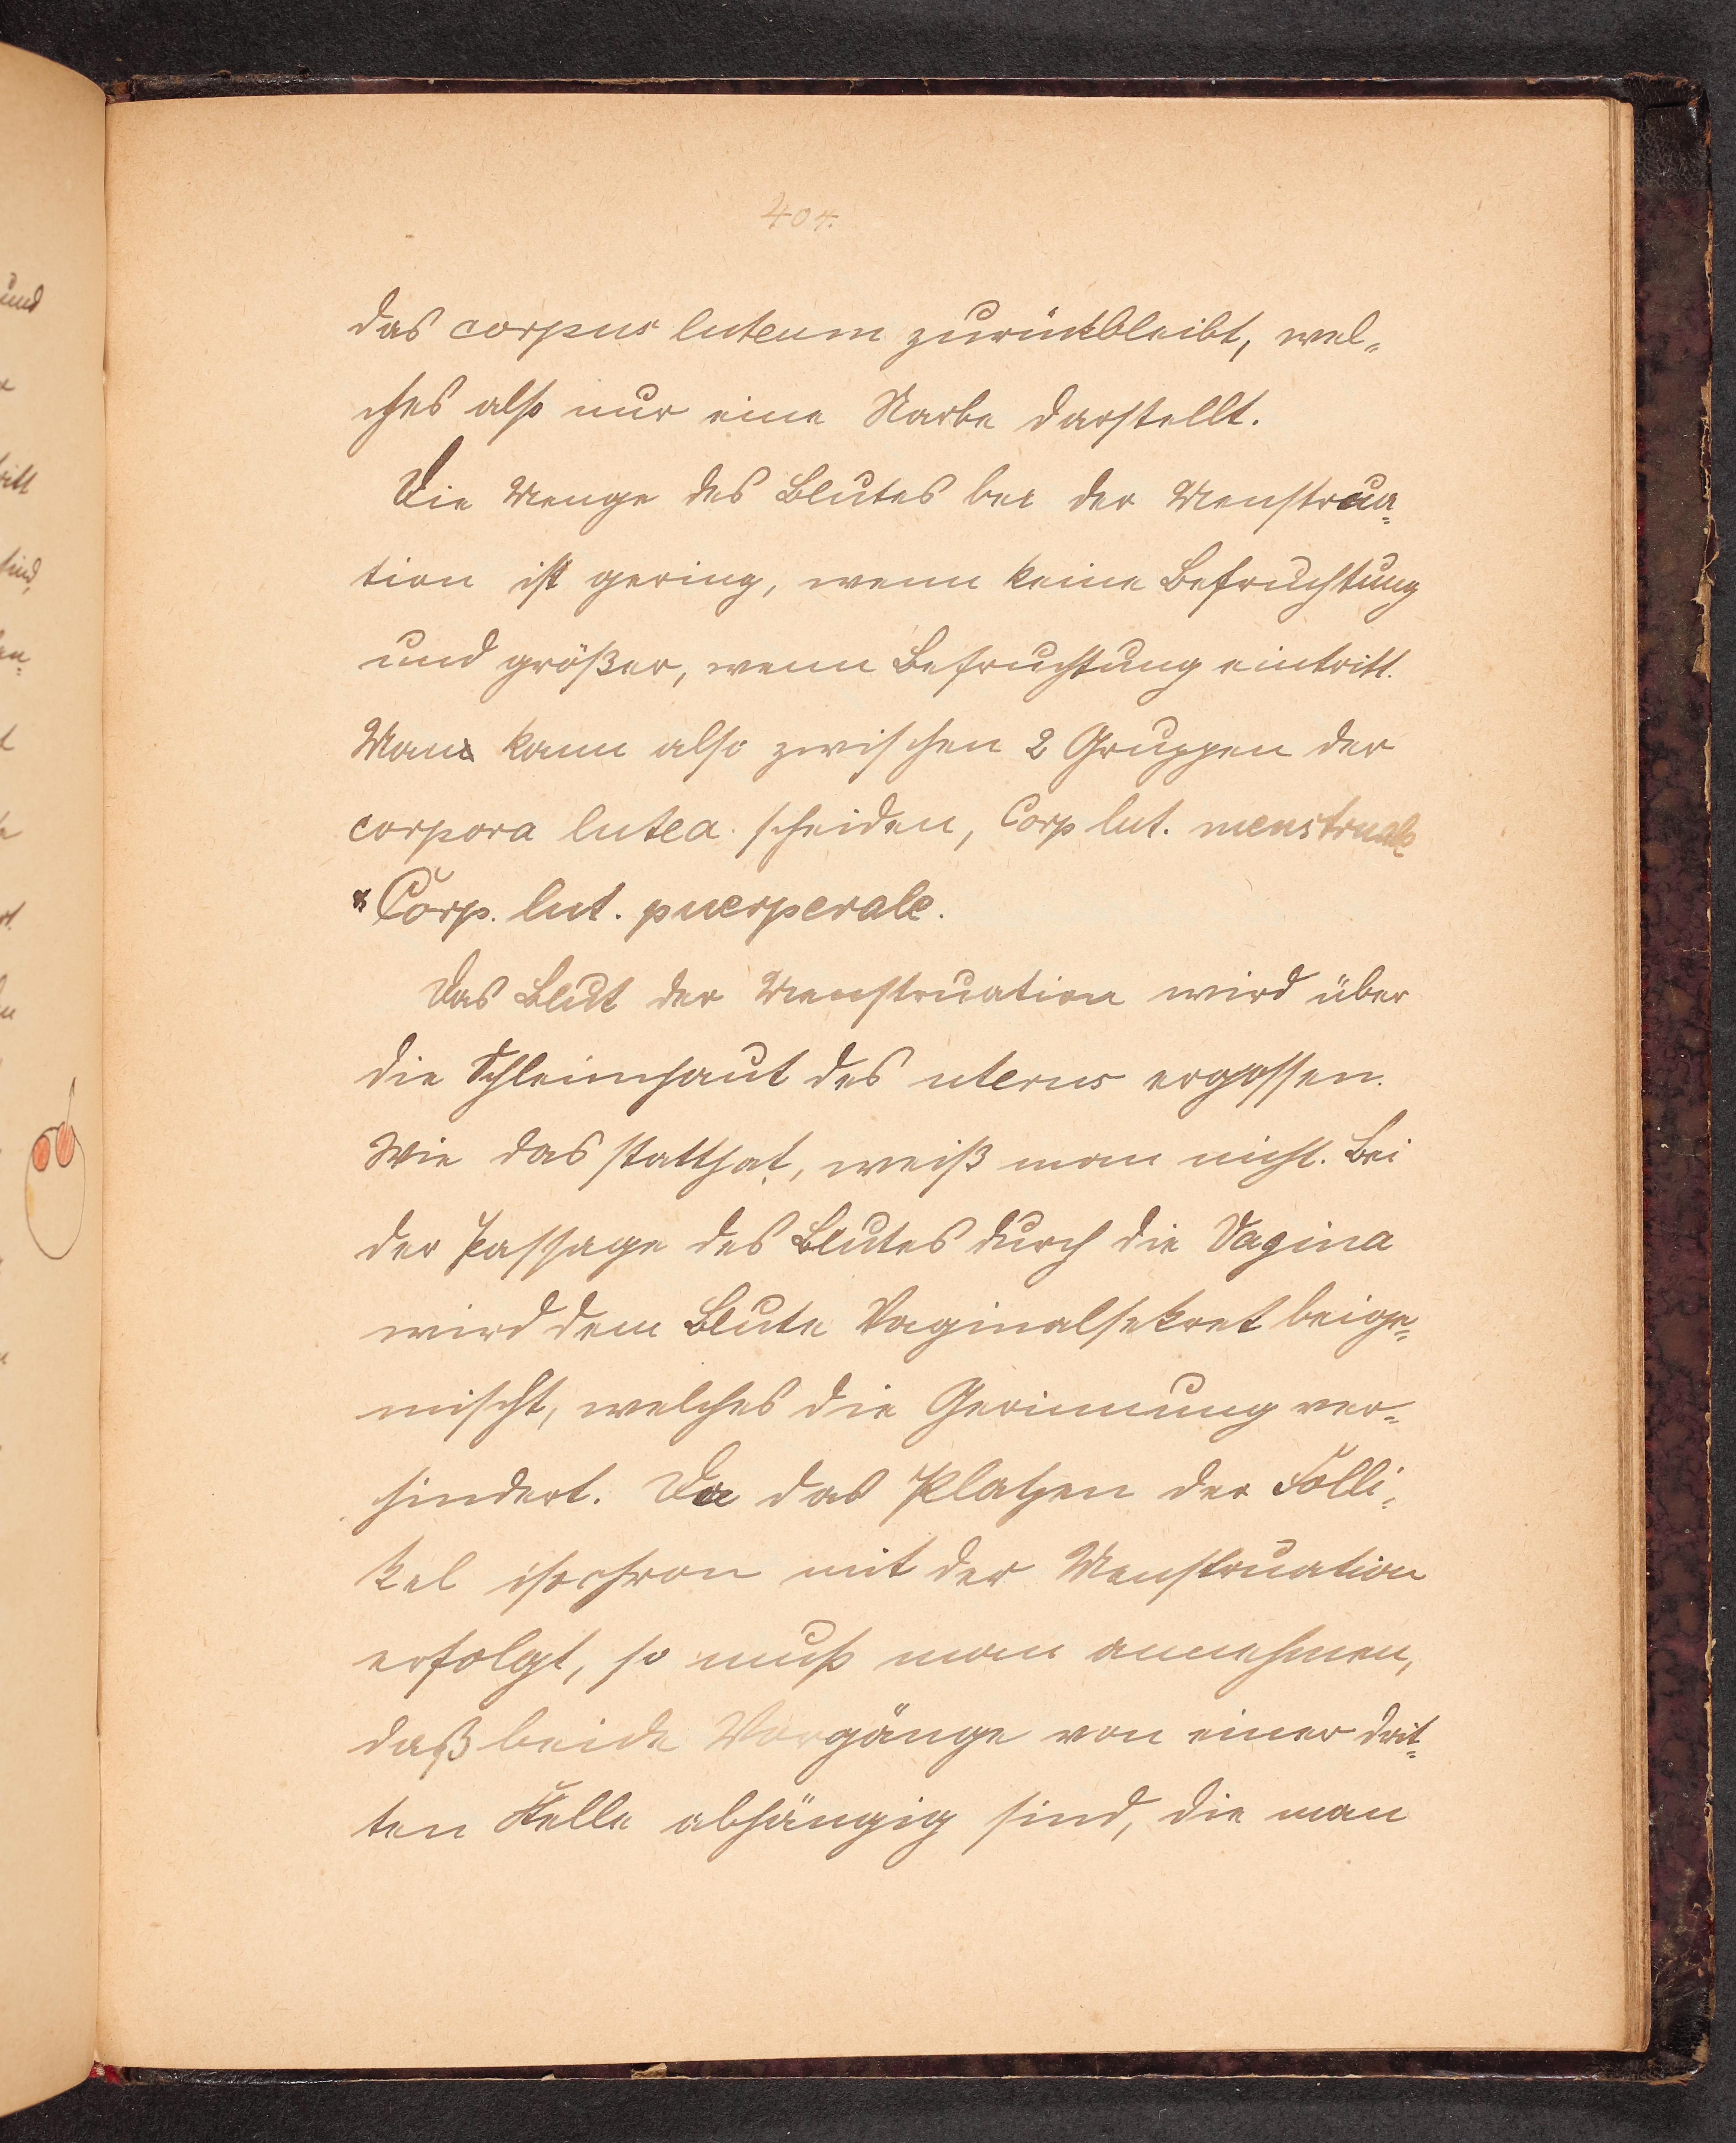 404.
das corpus luteum zurückbleibt, wel-
ches also nur eine Narbe darstellt.
Die Menge des Blutes bei der Menstrua=
tion ist gering, wenn keine Befruchtung
und größer, wenn Befruchtung eintritt.
Man kann also zwischen 2 Gruppen der
corpora lutea scheiden, Corp lut. menstruale
& Corp. lut. puerperale.
Das Blut der Menstruation wird über
die Schleimhaut des uterus ergossen.
Wie das statthat, weiß man nicht. Bei
der Passage des Blutes durch die Vagina
wird dem Blute Vaginalsekret beige=
mischt, welches die Gerinnung ver=
hindert. Da das Platzen der Folli-
kel isochron mit der Menstruation
erfolgt, so muß man annehmen,
daß beide Vorgänge von einer drit=
ten Stelle abhängig sind, die man
und
sind,